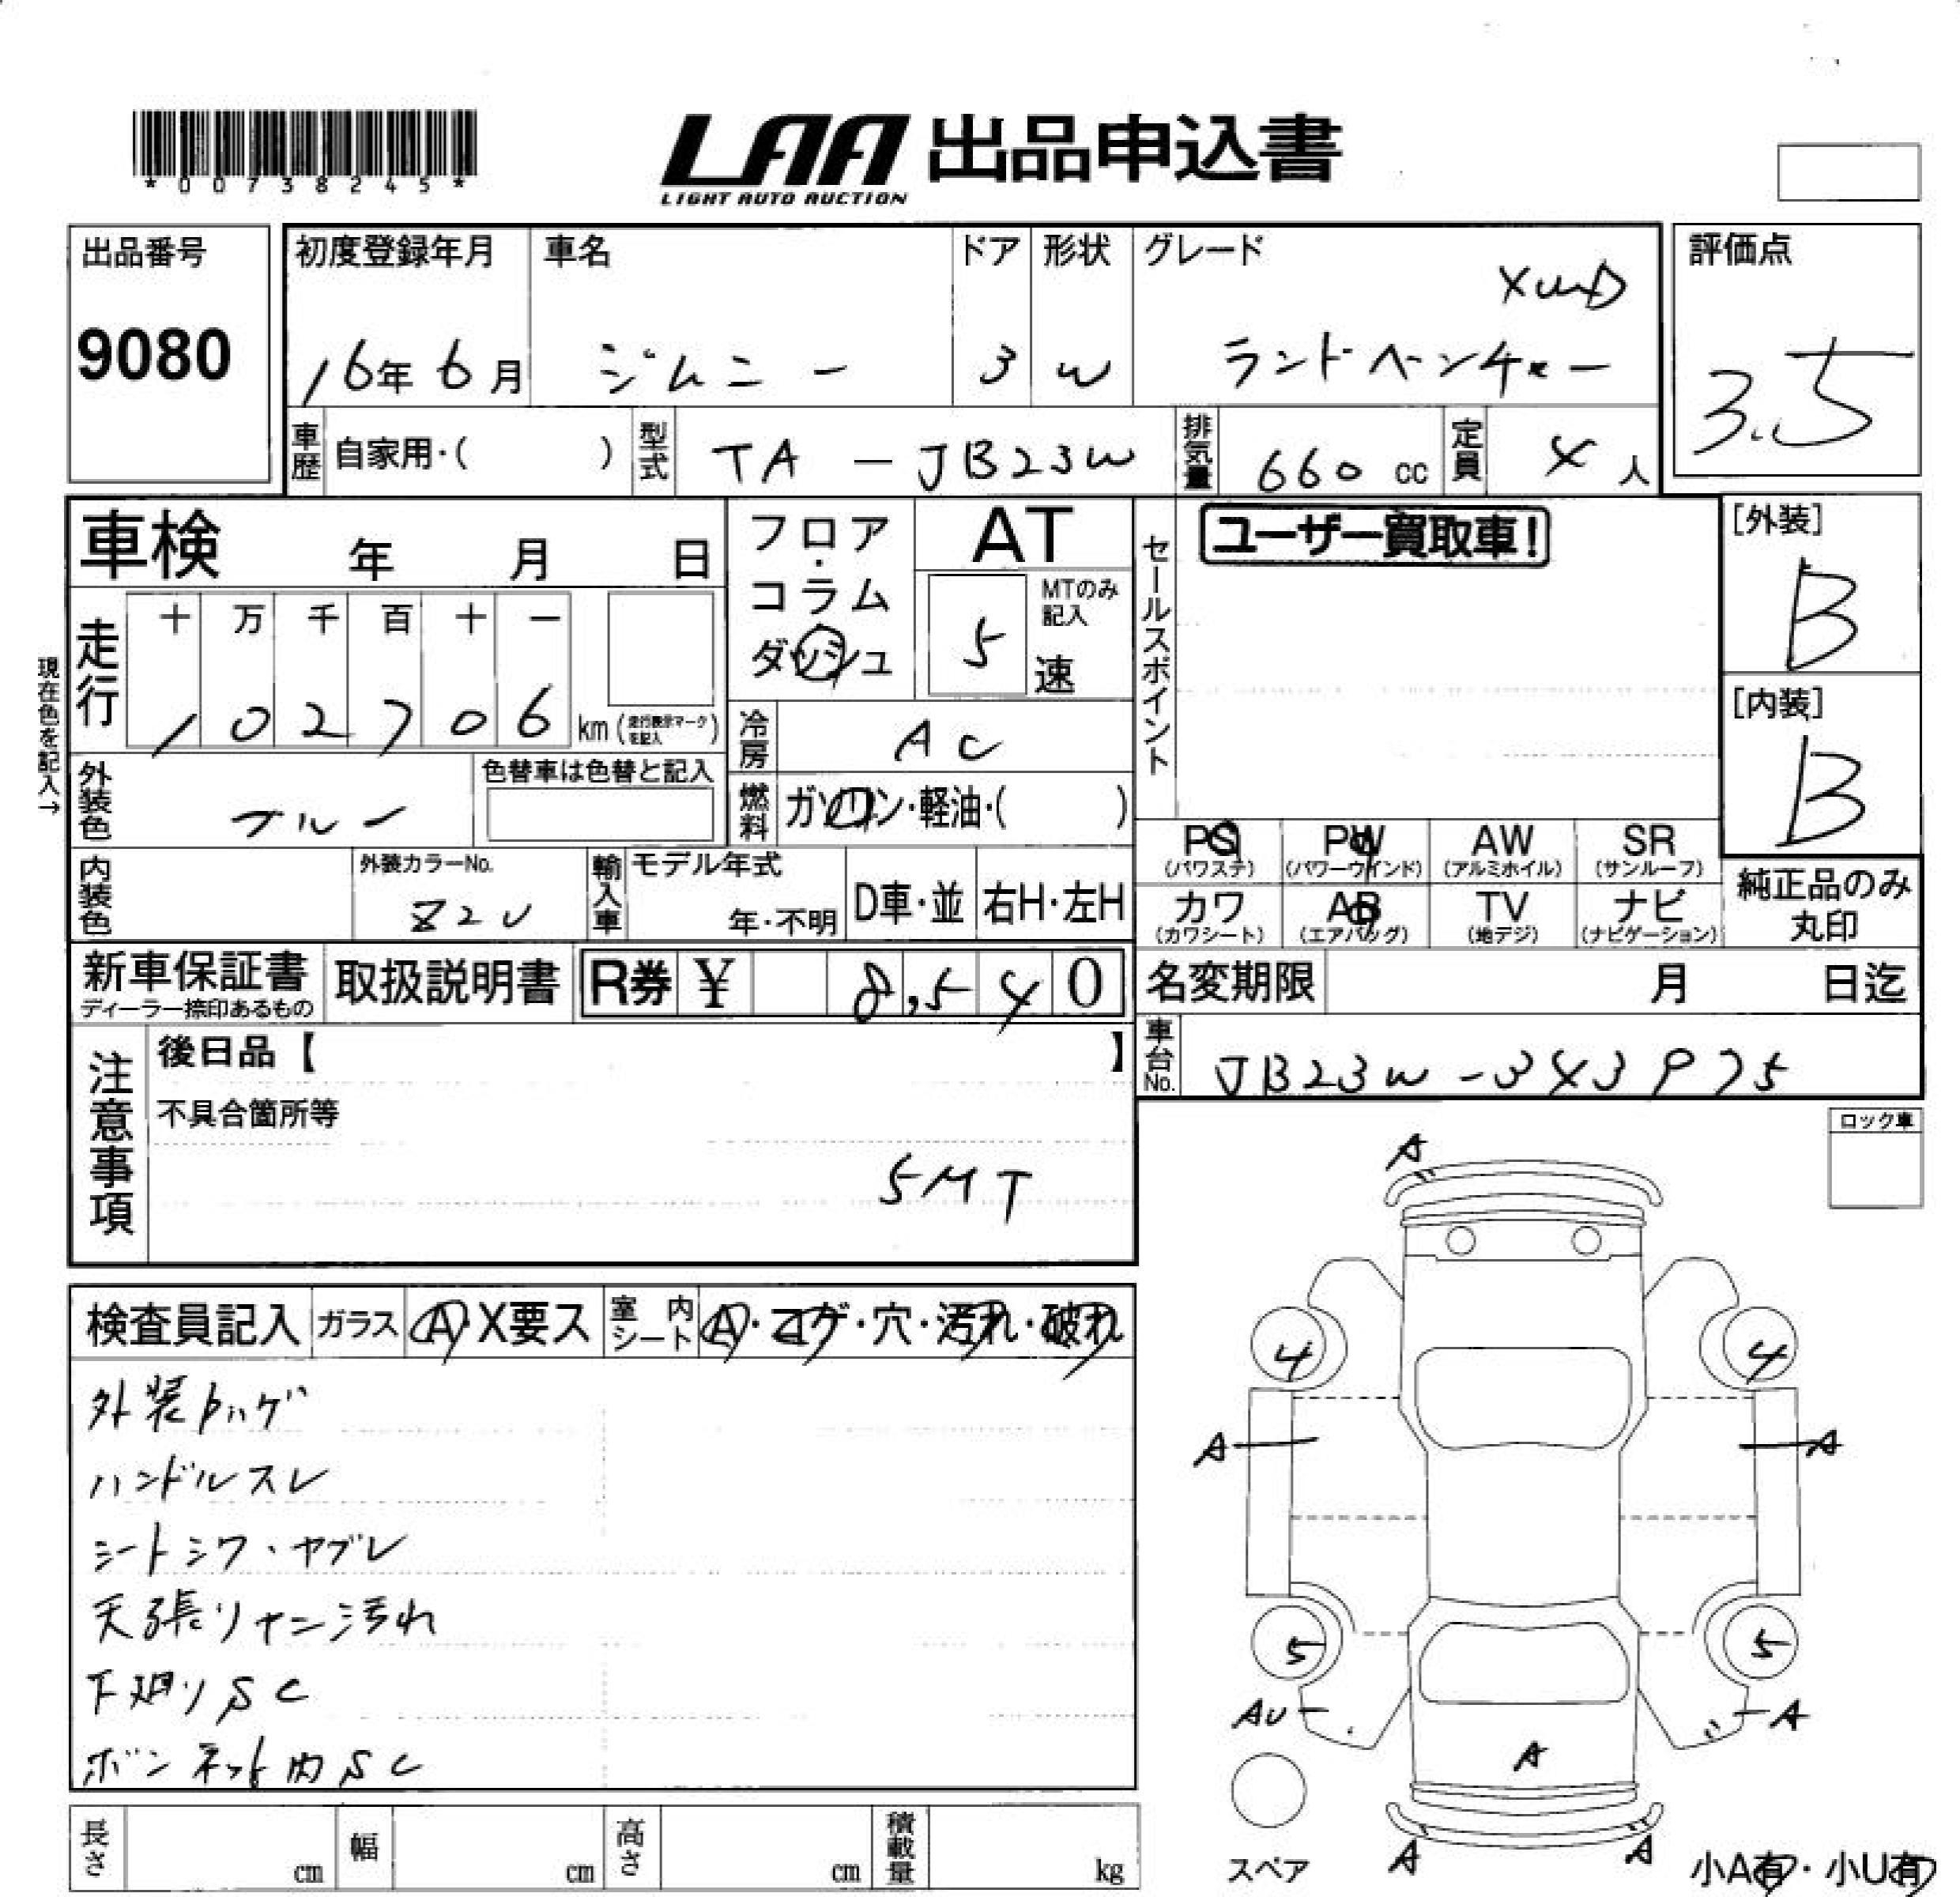 *00738245*
LAA 出品申込書
LIGHT AUTO AUCTION
出品番号
9080
初度登録年月
16年 6月
車名
ジムニー
ドア
3
形状
W
グレード
XWD
ランドベンチャー
評価点
3.5
車歴 自家用・( )
型式 TA - JB23W
排気量 660 cc
定員 4 人
車検 年 月 日
フロア・コラム ダッシュ
AT
5 MTのみ記入 速
セールスポイント
ユーザー買取車!
[外装]
B
[内装]
B
現在色を記入→
走行
十 万 千 百 十 一
1 0 2 7 0 6 km (走行表示マークを記入)
冷房 AC
外装色 ブルー
色替車は色替と記入
燃料 ガソリン・軽油・( )
内装色
外装カラーNo.
Z2U
輸入車 モデル年式
年・不明
D車・並 右H・左H
PS (パワステ)
PW (パワーウインド)
AW (アルミホイル)
SR (サンルーフ)
カワ (カワシート)
AB (エアバッグ)
TV (地デジ)
ナビ (ナビゲーション)
純正品のみ
丸印
新車保証書
ディーラー捺印あるもの
取扱説明書
R券 ¥ 8,540
名変期限 月 日迄
車台No. JB23W-343975
注意事項
後日品【 】
不具合箇所等
5MT
ロック車
検査員記入
ガラス A・X要ス
室内シート A・コゲ・穴・汚れ・破れ
外装
ハンドルスレ
シートシワ・ヤブレ
天張リヤニ汚れ
下廻りSC
ボンネット内SC
A
4 4
A A
5 5
AU A
A
A A
スペア
小A有・小U有
長さ cm
幅 cm
高さ cm
積載量 kg